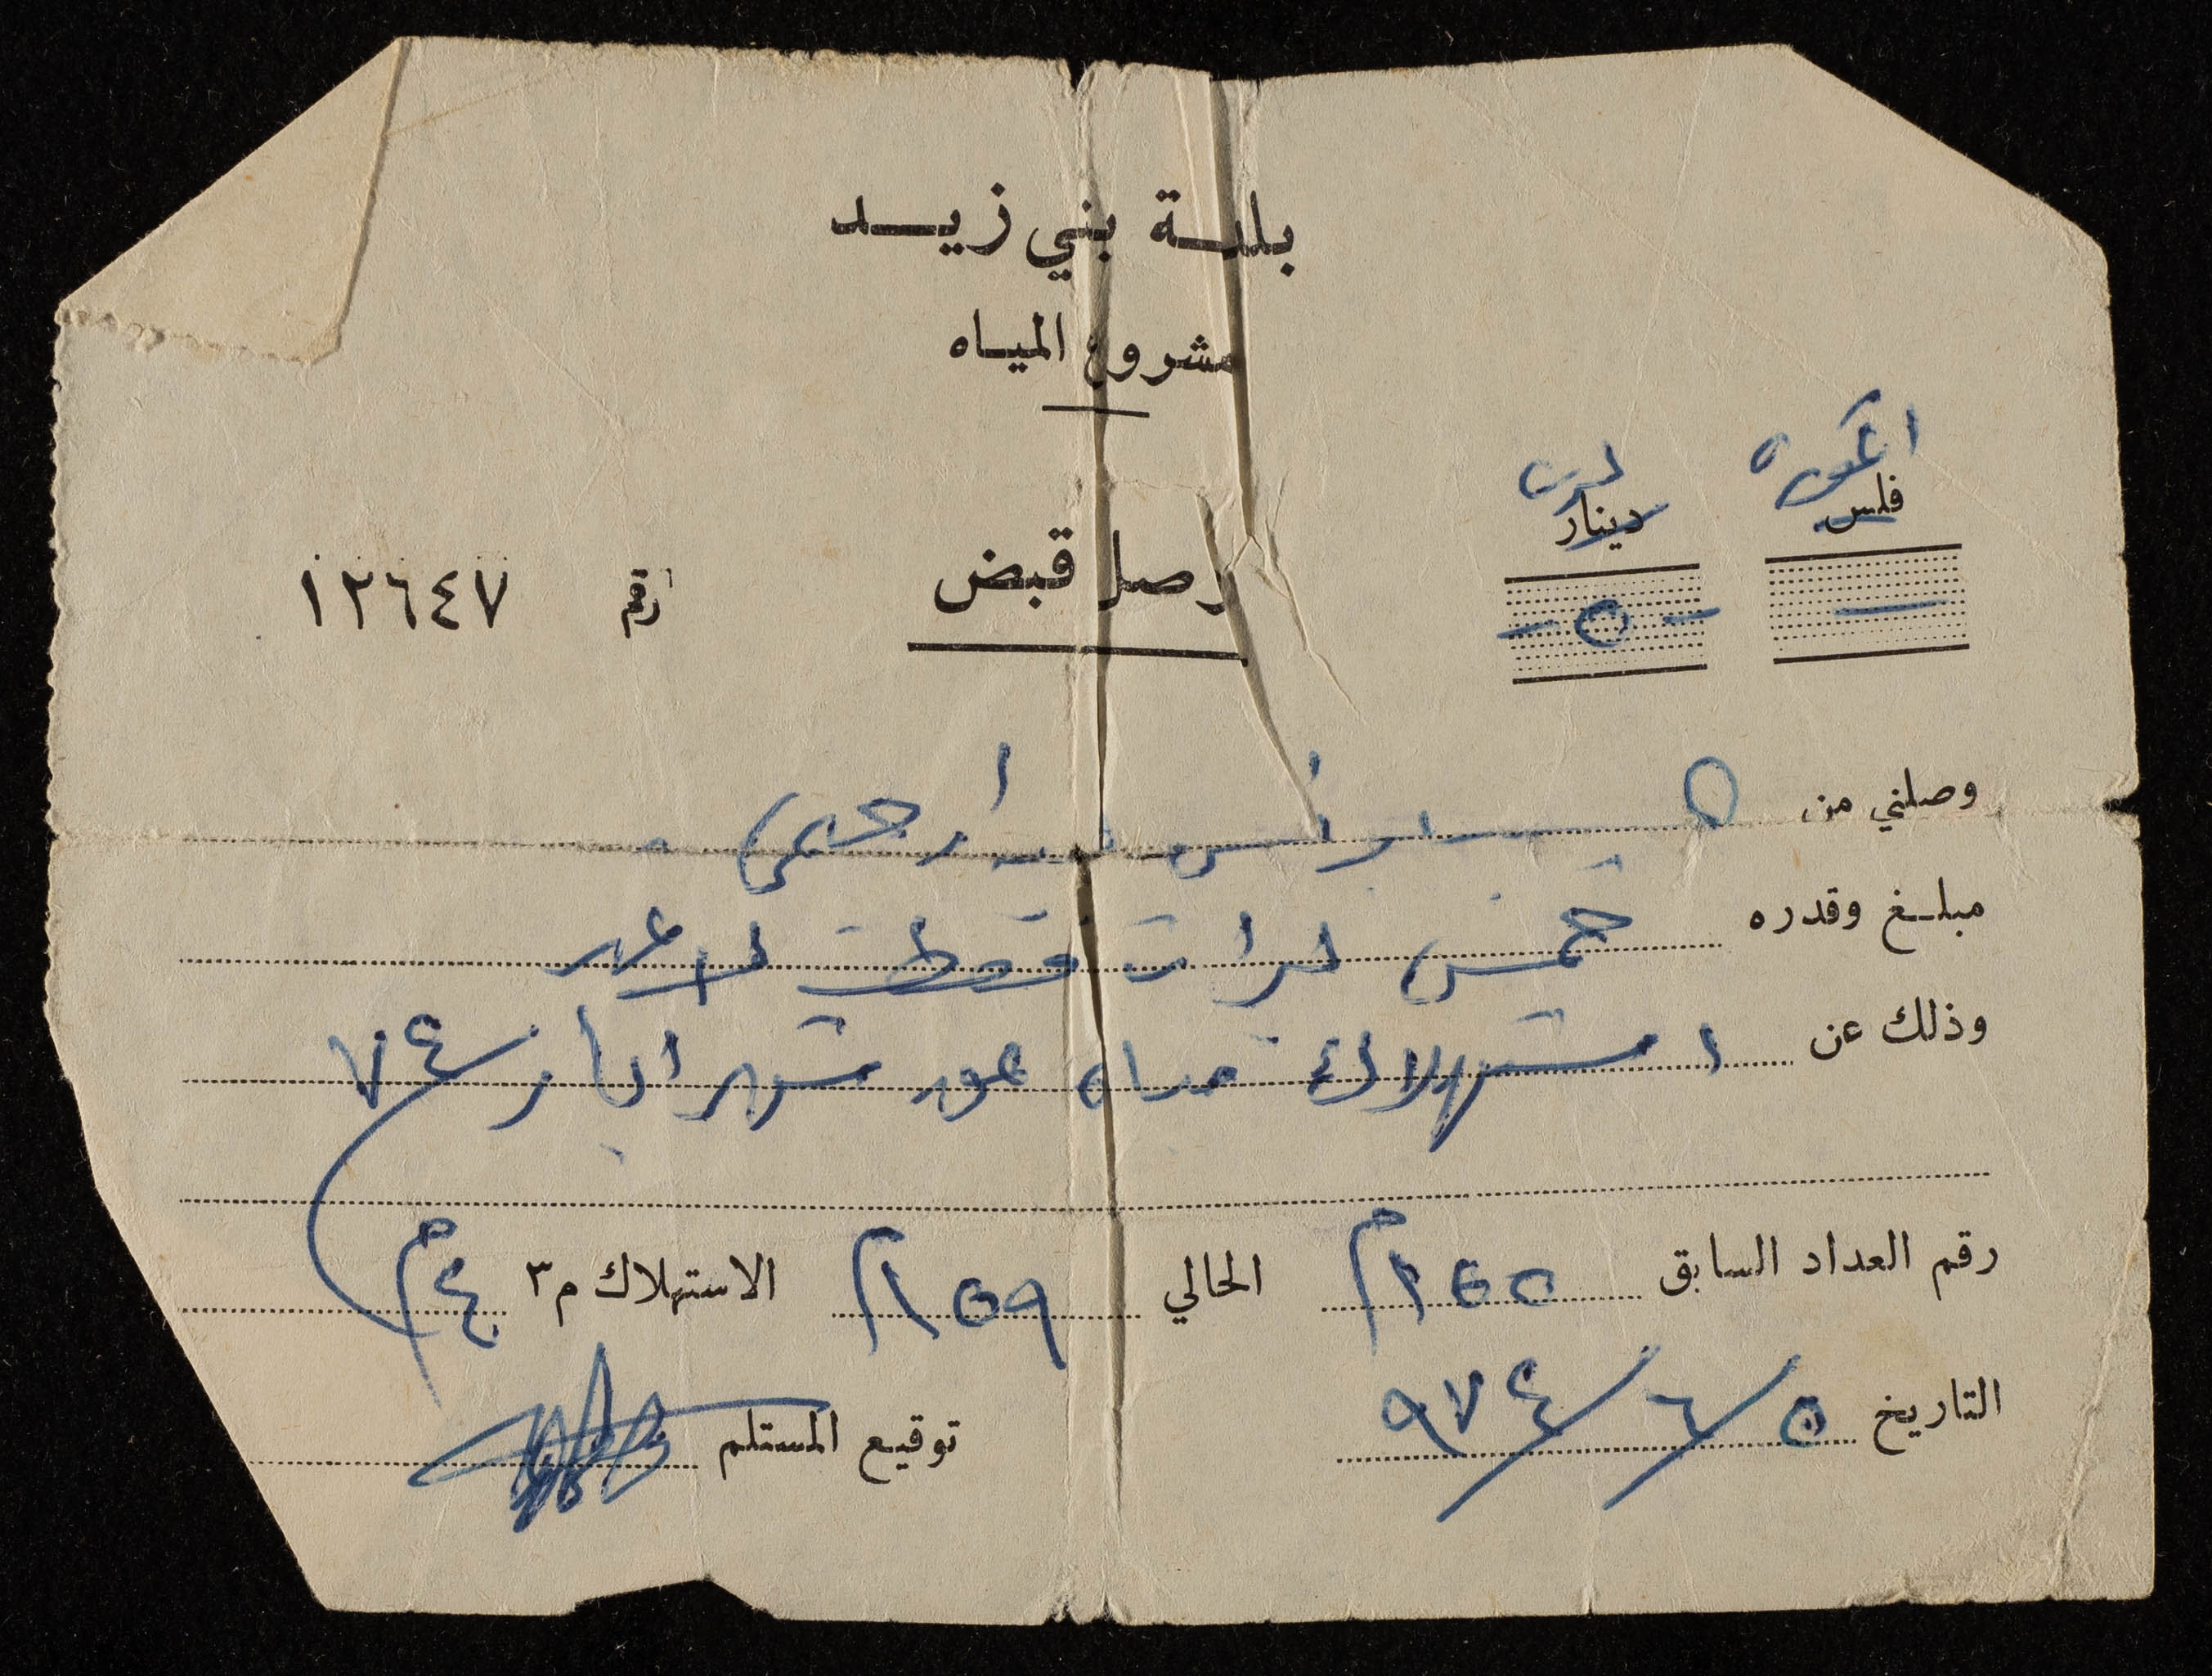 بلدية بني زيد
مشروع المياه
اغورة ليرة
فلس دينار
— ٥ —
وصل قبض
رقم ١٢٦٤٧
وصلني من
مبلغ وقدره خمس ليرات فقط لا غير
وذلك عن استهلاك مياه عن شهر ايار ٧٤
رقم العداد السابق ١٥٥م الحالي ١٥٩م الاستهلاك م٣ ٤م
التاريخ ٥/٦/٩٧٤ توقيع المستلم